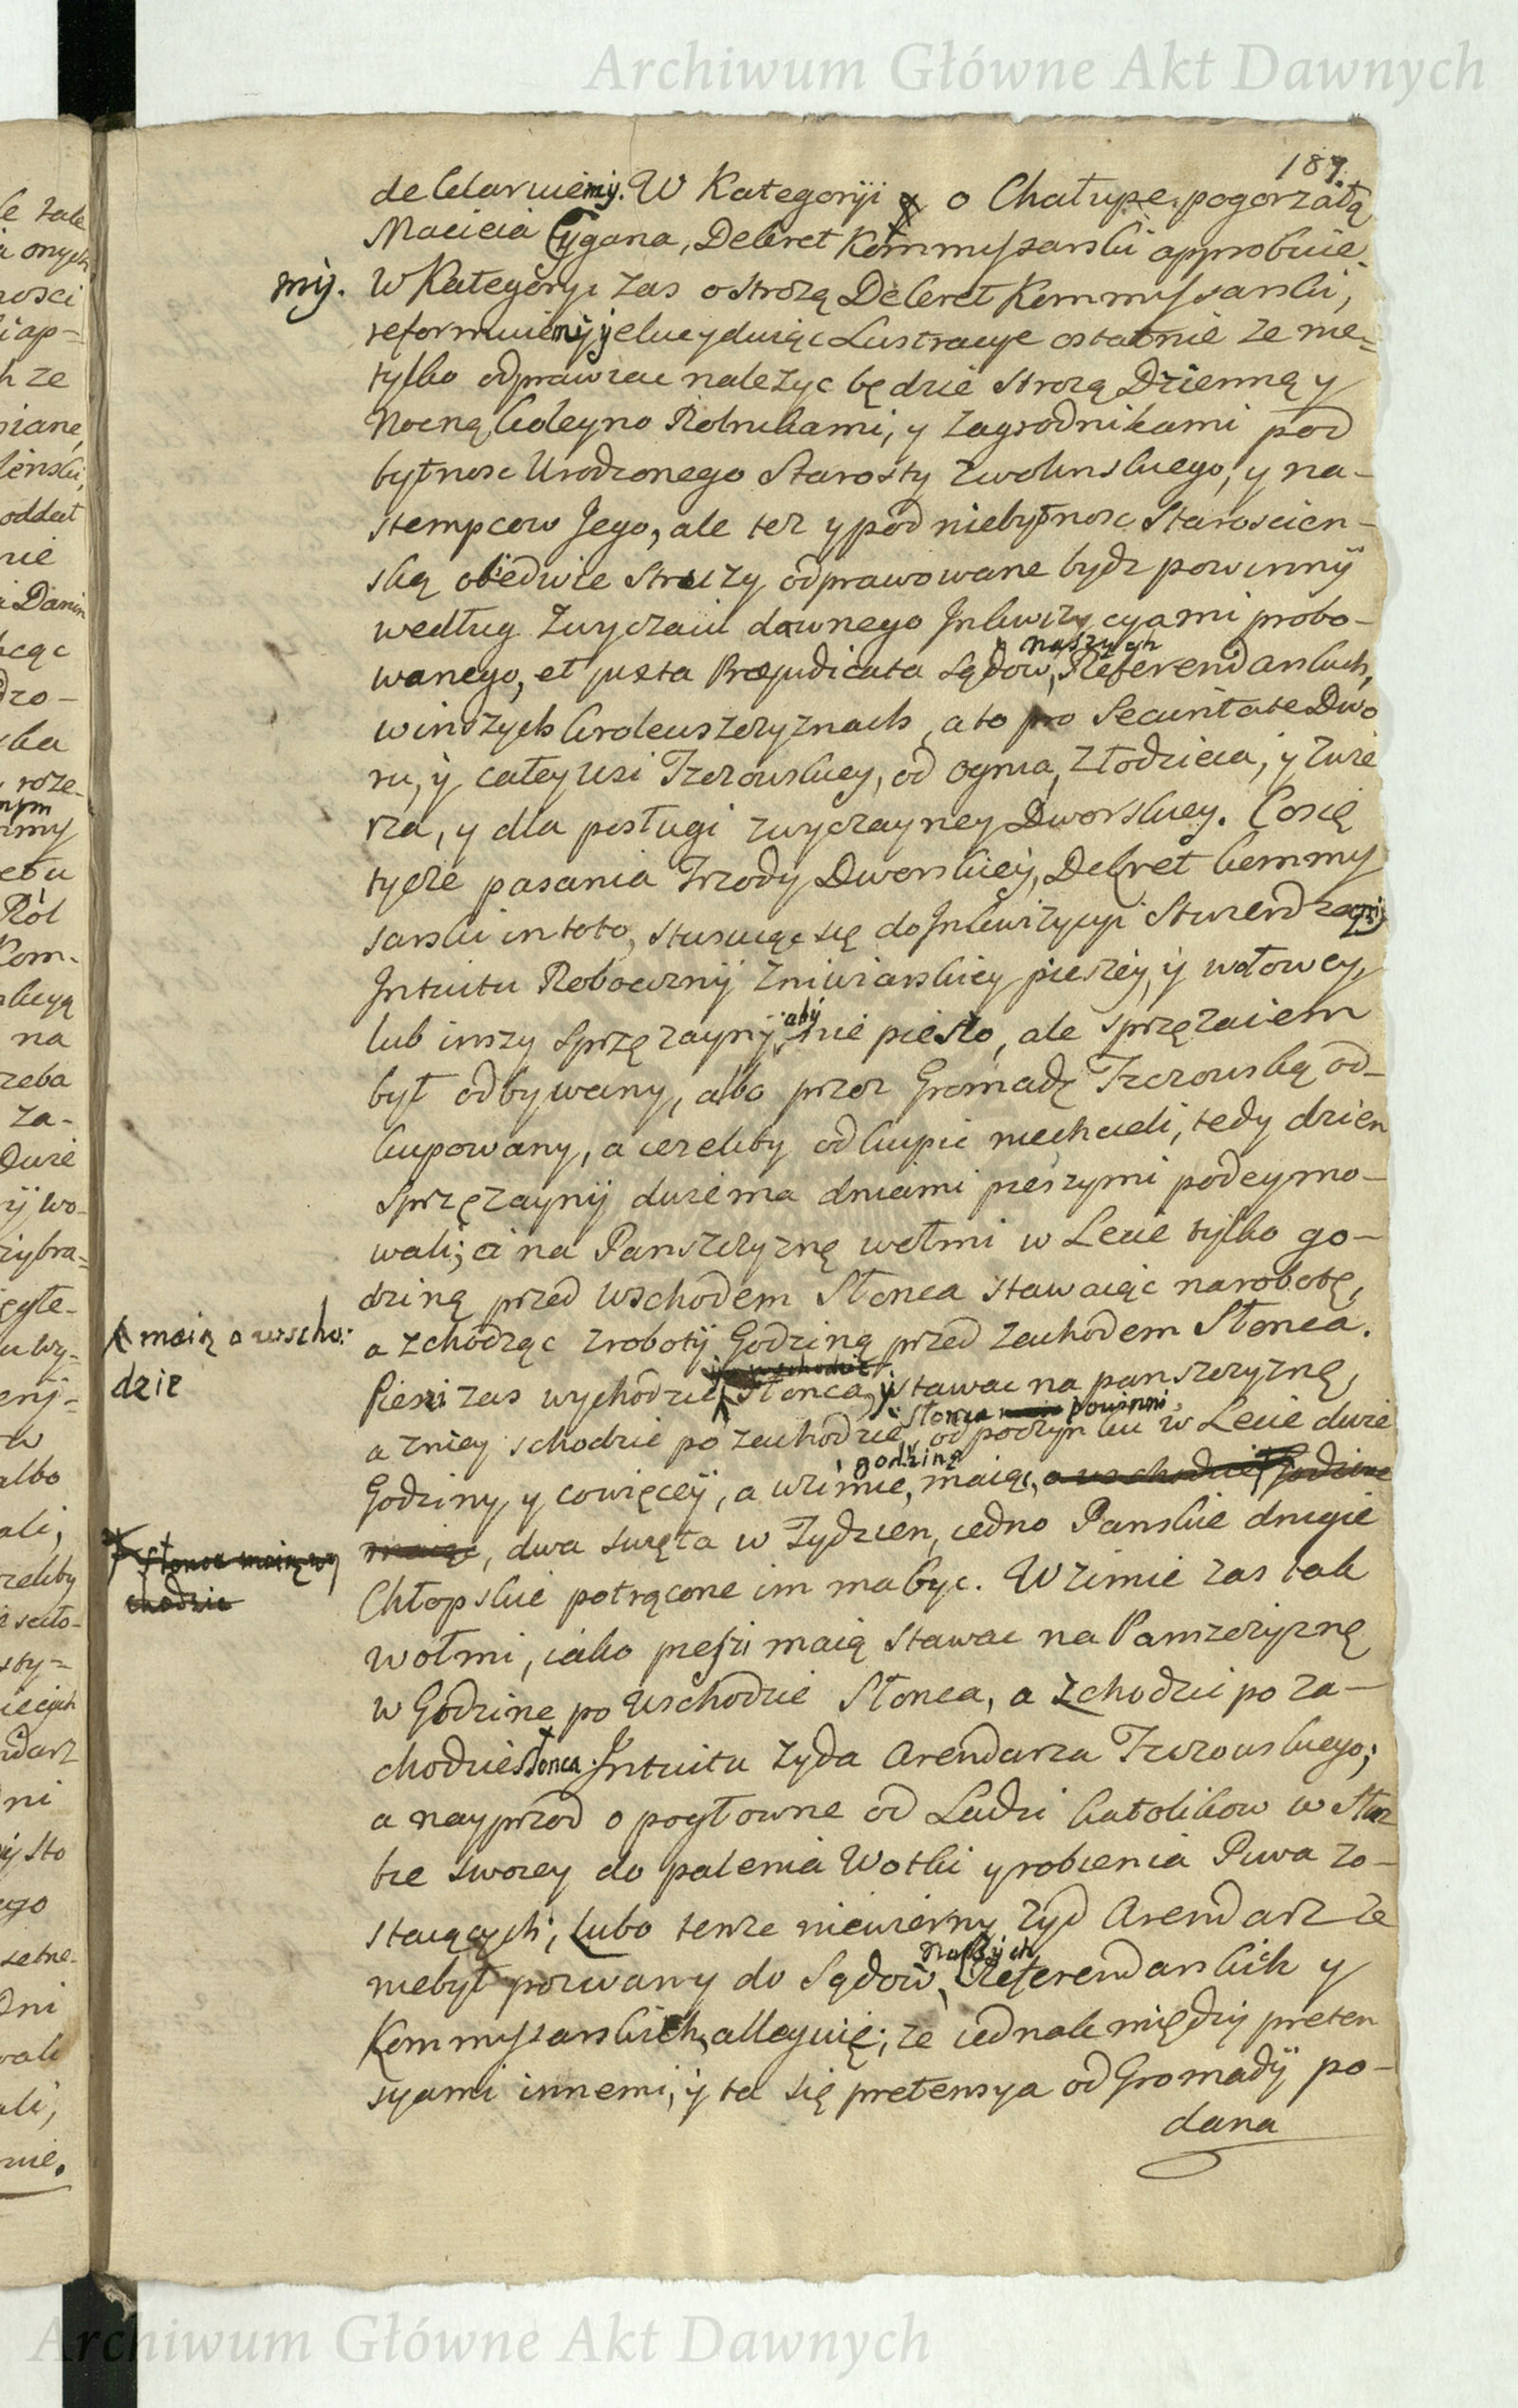 Archiwum Główne Akt Dawnych
187.
deklaruiemy. W Kategoryi o Chałupę pogorzałą
Macieia Cygana, Dekret Kommyssarski approbuie
my. W Kategoryi zas o strożą Dekret Kommyssarski,
reformuiemy y elucyduiąc Lustracye ostatnie ze nie=
tylko odprawiac nalezyc będzie strozą Dzienną y
Nocną koleyno Rolnikami, y zagrodnikami pod
bytnosc Urodzonego Starosty Zwolinskiego, y na-
stempcow Jego, ale tez y pod niebytnosc Staroscien-
ską obiedwie strozy odprawowane bydz powinny
według zwyczaiu dawnego Inkwizycyami probo-
wanego, et juxta Præjudicata Sądow naszych Referendarskich,
w inszych krolewszczyznach, a to pro Securitate Dwo
ru, y całey wsi Tczowskiey, od ognia, złodzieia, y zwie
rza, y dla posługi zwyczayney Dworskiey. Co się
tycze pasania Trzody Dworskiey, Dekret kommys
sarski in toto, stosuiąc się do Inkwizycyi stwierdzamy
Intuitu Robocizny zniwiarskiey pieszey, y wołowey,
lub inszy sprzęzayny, aby nie pieszo, ale sprzęzaiem
był odbywany, albo przez Gromadę Tczowską od-
kupowany, a iezeliby odkupic niechcieli, tedy dzien
sprzęzayny dwiema dniami pieszymi podeymo-
wali; a na Panszczyznę wołmi w Lecie tylko go-
dziną przed wschodem Słonca stawaiąc na robotę,
a zchodząc z roboty Godziną przed zachodem Słonca.
maią o wscho:
dzie
Piesi zas wychodzic Słonca, y stawac na panszczyznę,
a zniey schodzic po zachodzie Słonca powinni, odpoczynku w Lecie dwie
Godziny, y cowięcey, a wzimie godzinę maiąc, a wschodzie Godzine
maiąc, dwa swięta w Tydzien, iedno Panskie drugie
Słonca maią wy
chodzic
Chłopskie potrącone im ma byc. W zimie zas tak
wołmi, iako piesi maią stawac na Panszczyznę
w Godzine po wschodzie Słonca, a zchodzic po za-
chodzie Słonca. Intuitu Zyda Arendarza Tczowskiego;
a nayprzod o pogłowne od Ludzi katolikow w służ
bie swoiey do palenia Wotki y robienia Piwa zo-
staiących; lubo tenze niewierny Zyd Arendarz ze
niebył pozwany do Sądow Naszych Referendarskich y
Kommyssarskich, alleguie; ze iednak między preten
syami innemi, y ta się pretensya od Gromady po-
dana
Archiwum Główne Akt Dawnych